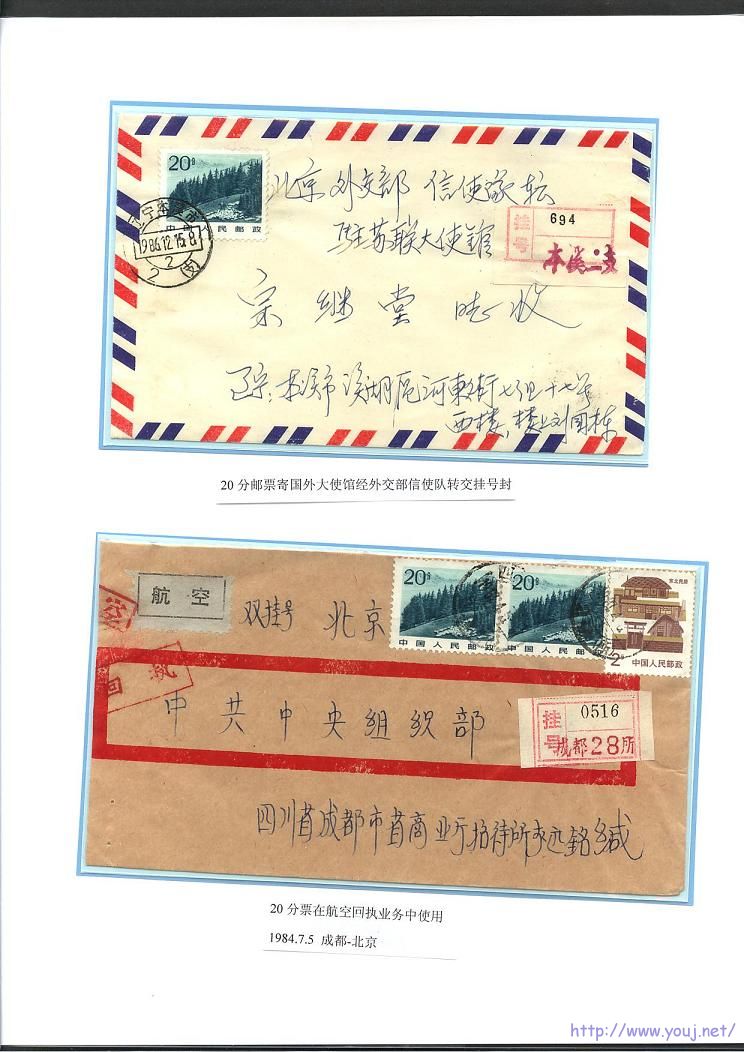 20分
北京 外交部 信使队转
中国人民邮政
辽宁本溪市
1986.12.15.8
2
(支)
驻苏联大使馆
挂号
694
本溪二支
宗继堂 收
辽宁:本溪市溪湖区河東街七组十七号
西楼,楼上刘国栋
20分邮票寄国外大使馆经外交部信使队转交挂号封
航空
双挂号 北京
20分
中国人民邮政
20分
中国人民邮政
东北民居
2分
中国人民邮政
空
回执
中共中央组织部
挂号
0516
成都28所
四川省成都市省商业厅招待所 缄
20分票在航空回执业务中使用
1984.7.5 成都-北京
http://www.youj.net/